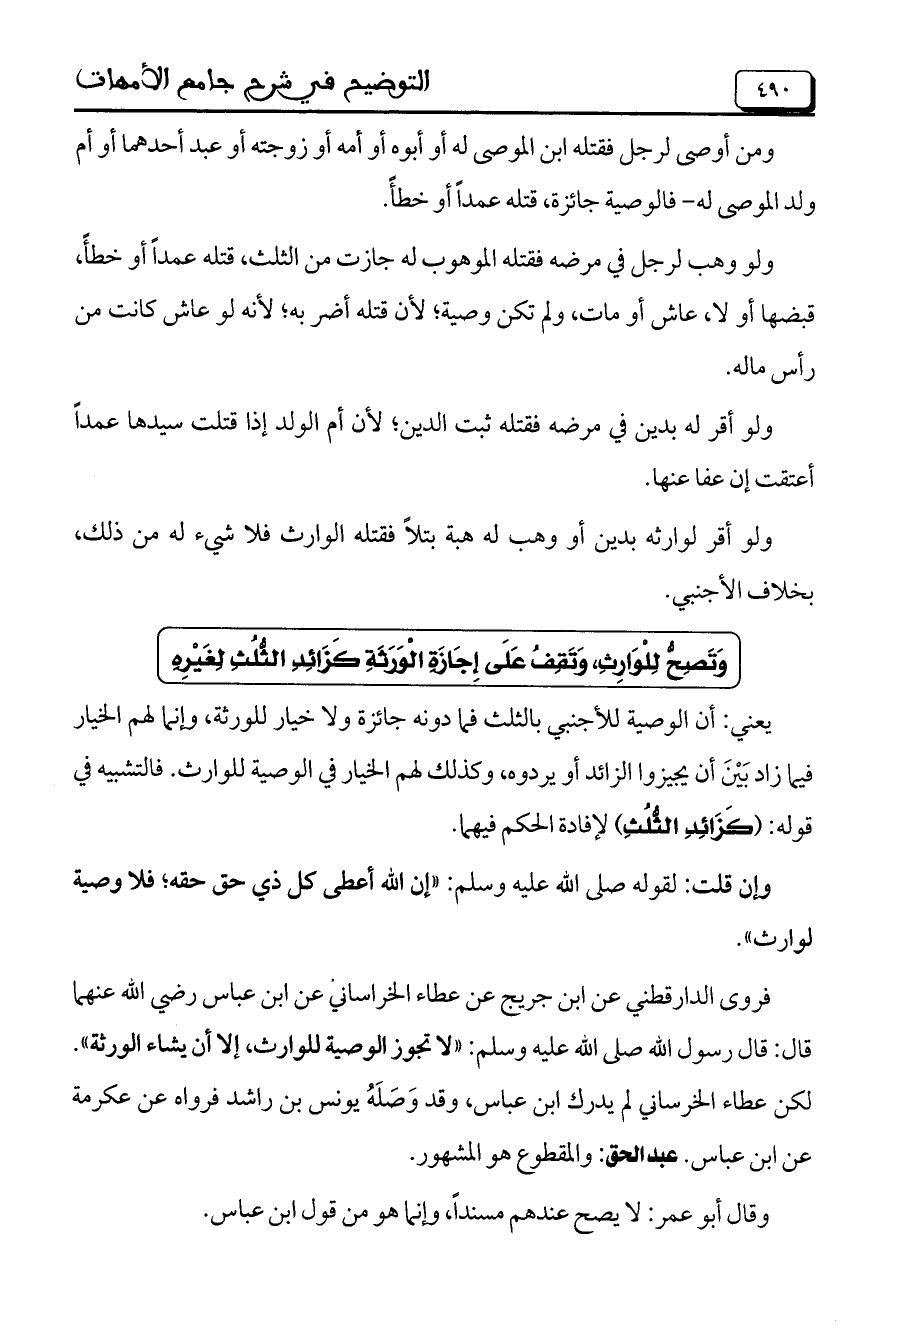 ٤٩٠
التوضيح في شرح جامع الأمهات
ومن أوصى لرجل فقتله ابن الموصى له أو أبوه أو أمه أو زوجته أو عبد أحدهما أو أم
ولد الموصى له- فالوصية جائزة، قتله عمداً أو خطأً.
ولو وهب لرجل في مرضه فقتله الموهوب له جازت من الثلث، قتله عمداً أو خطأً،
قبضها أو لا، عاش أو مات، ولم تكن وصية؛ لأن قتله أضر به؛ لأنه لو عاش كانت من
رأس ماله.
ولو أقر له بدين في مرضه فقتله ثبت الدين؛ لأن أم الولد إذا قتلت سيدها عمداً
أعتقت إن عفا عنها.
ولو أقر لوارثه بدين أو وهب له هبة بتلاً فقتله الوارث فلا شيء له من ذلك،
بخلاف الأجنبي.
وَتَصِحُّ لِلْوَارِثِ، وَتَقِفُ عَلَى إِجَازَةِ الْوَرَثَةِ كَزَائِدِ الثُّلُثِ لِغَيْرِهِ
يعني: أن الوصية للأجنبي بالثلث فما دونه جائزة ولا خيار للورثة، وإنما لهم الخيار
فيما زاد بَيْنَ أن يجيزوا الزائد أو يردوه، وكذلك لهم الخيار في الوصية للوارث. فالتشبيه في
قوله: (كَزَائِدِ الثُّلُثِ) لإفادة الحكم فيهما.
وإن قلت: لقوله صلى الله عليه وسلم: «إن الله أعطى كل ذي حق حقه؛ فلا وصية
لوارث».
فروى الدارقطني عن ابن جريج عن عطاء الخراساني عن ابن عباس رضي الله عنهما
قال: قال رسول الله صلى الله عليه وسلم: «لا تجوز الوصية للوارث، إلا أن يشاء الورثة».
لكن عطاء الخرساني لم يدرك ابن عباس، وقد وَصَلَهُ يونس بن راشد فرواه عن عكرمة
عن ابن عباس. عبد الحق: والمقطوع هو المشهور.
وقال أبو عمر: لا يصح عندهم مسنداً، وإنما هو من قول ابن عباس.